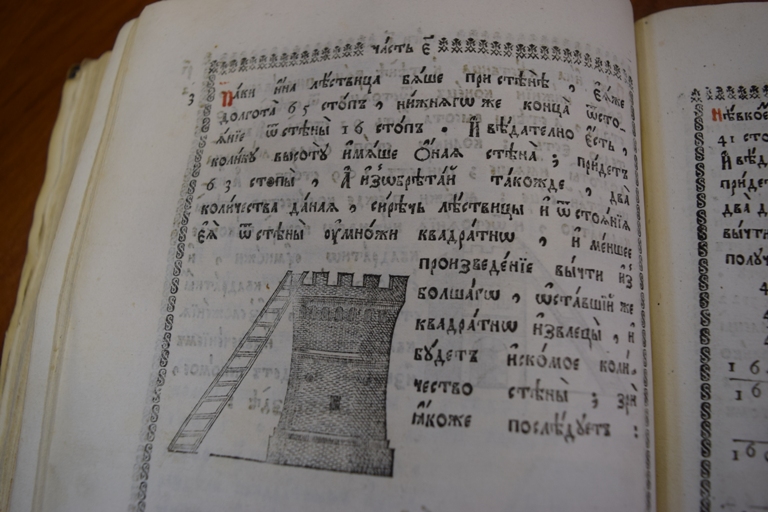 часть є҃
3
Паки и҆́на лѣствица бѧ́ше при стѣнѣ̀, є҆́ѧже
долгота̀ 65 стѡ́пъ, ни́жнѧгѡ же конца̀ ѿсто-
ѧ́нїе ѿ стѣны̀ 16 стопъ. И҆ вѣ́дателно є҆́сть,
коли́ку высотꙋ̀ и҆мѧ́ше ѻ҆́наѧ стѣна̀; прїи́детъ
63 стопы̀, А҆ и҆з̾ѡбрѣта́й та́кожде, два̀
коли́чества да́наѧ, си́рѣчь лѣ́ствицы и҆ ѿстоѧ́нїѧ
є҆ѧ̀ ѿ стѣны̀ ᲂу҆мно́жи квадра́тнѡ, и҆ ме́ншее
произведе́нїе вы́чти и҆з̾
болша́гѡ, ѡ҆ста́вшїй же
квадра́тнѡ и҆звлецы̀, и҆
бꙋ́детъ и҆ско́мое коли́-
чество стѣны̀; зрѝ
ꙗ҆́коже послѣ́дꙋетъ:
41
И҆ вѣ́д
прїи́де
два̀ д
вы́чти
полꙋч
4
4
16
16